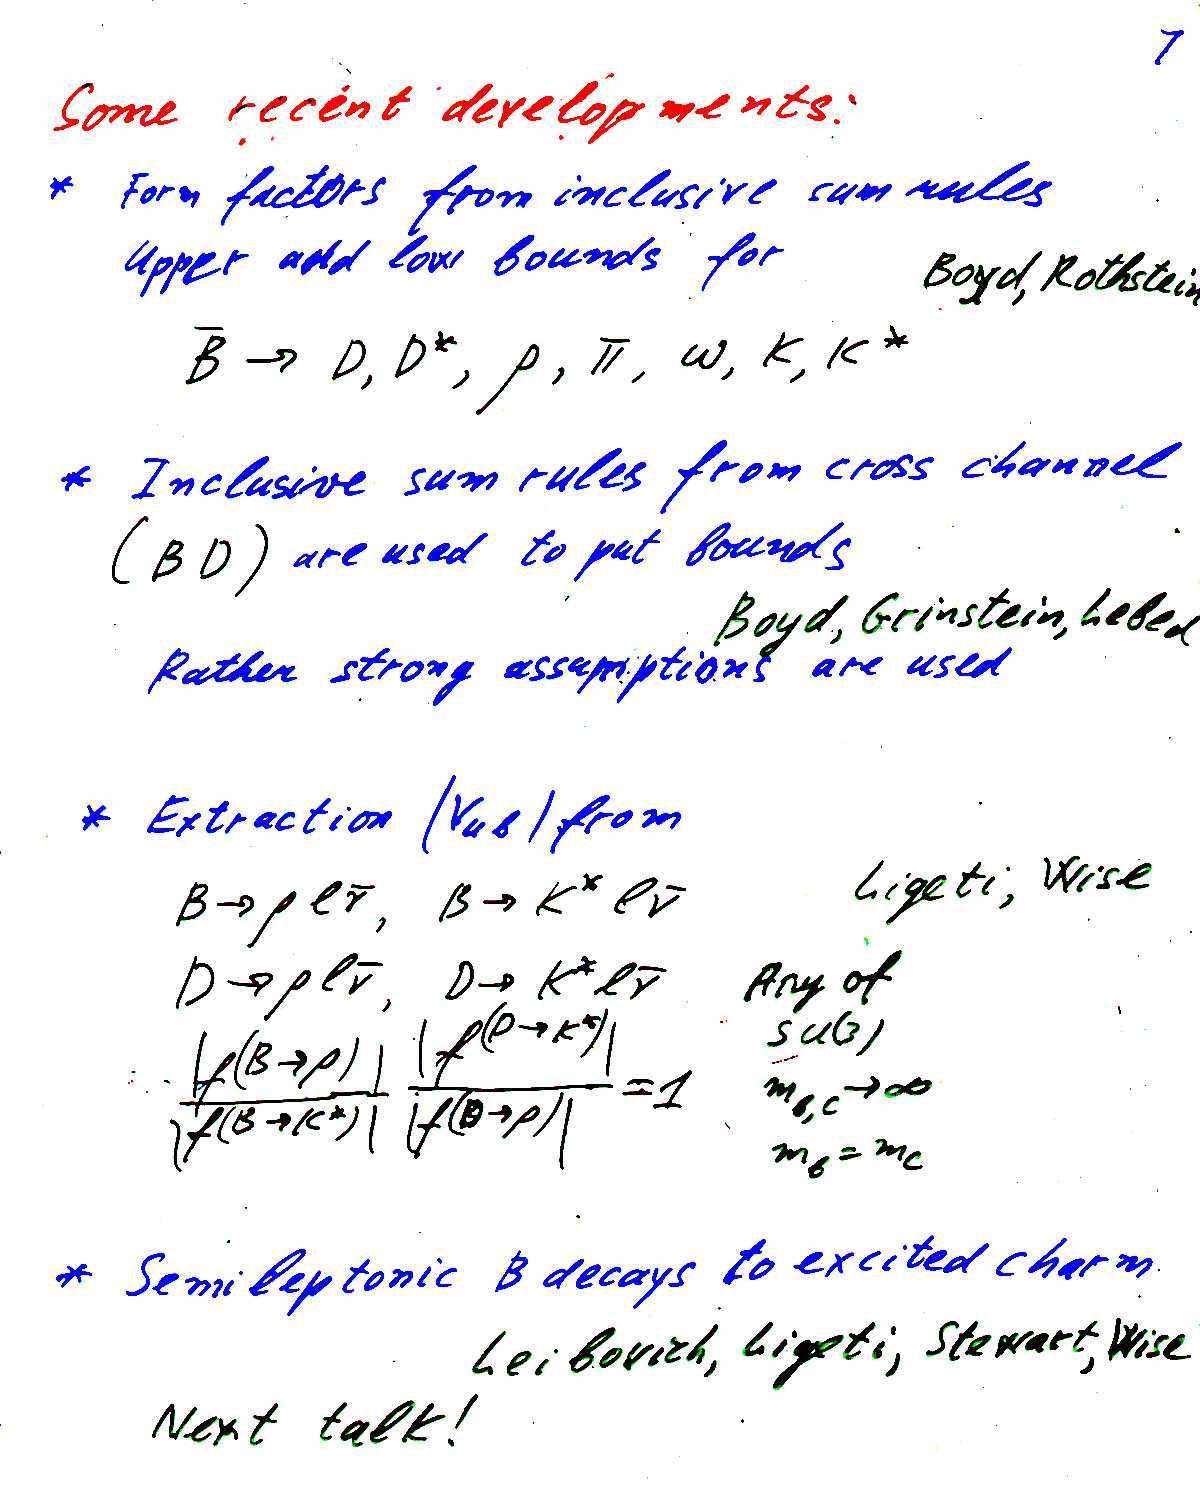 7
Some recent developments:
* Form factors from inclusive sum rules
Upper add low bounds for
Boyd, Rothstein
B̄ → D, D*, ρ, π, ω, K, K*
* Inclusive sum rules from cross channel
(BD) are used to put bounds
Boyd, Grinstein, Lebed
Rather strong assumptions are used
* Extraction |Vub| from
B→ρℓν̄, B→K*ℓν̄ Ligeti, Wise
D→ρℓν̄, D→K*ℓν̄ Any of
|f(B→ρ)|/|f(B→K*)| |f(D→K*)|/|f(D→ρ)| = 1 SU(3)
m_b,c→∞
m_b = m_c
* Semileptonic B decays to excited charm
Leibovich, Ligeti, Stewart, Wise
Next talk!